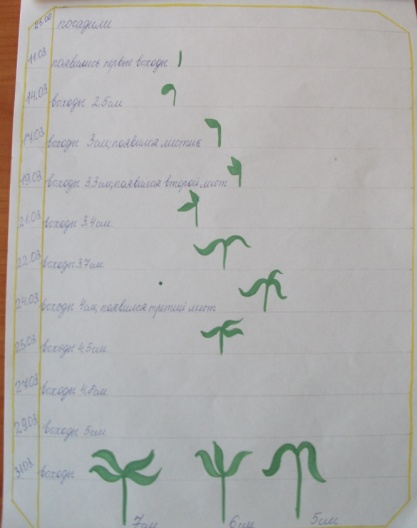 05.03 посадили
11.03 появились первые всходы
14.03 всходы 2.5см
17.03 всходы 3см, появился листик
19.03 всходы 3.3см, появился второй лист
21.03 всходы 3.4см
22.03 всходы 3.7см
24.03 всходы 4см, появился третий лист
25.03 всходы 4.5см
27.03 всходы 4.8см
29.03 всходы 5см
31.03 всходы
7см 6см 5см